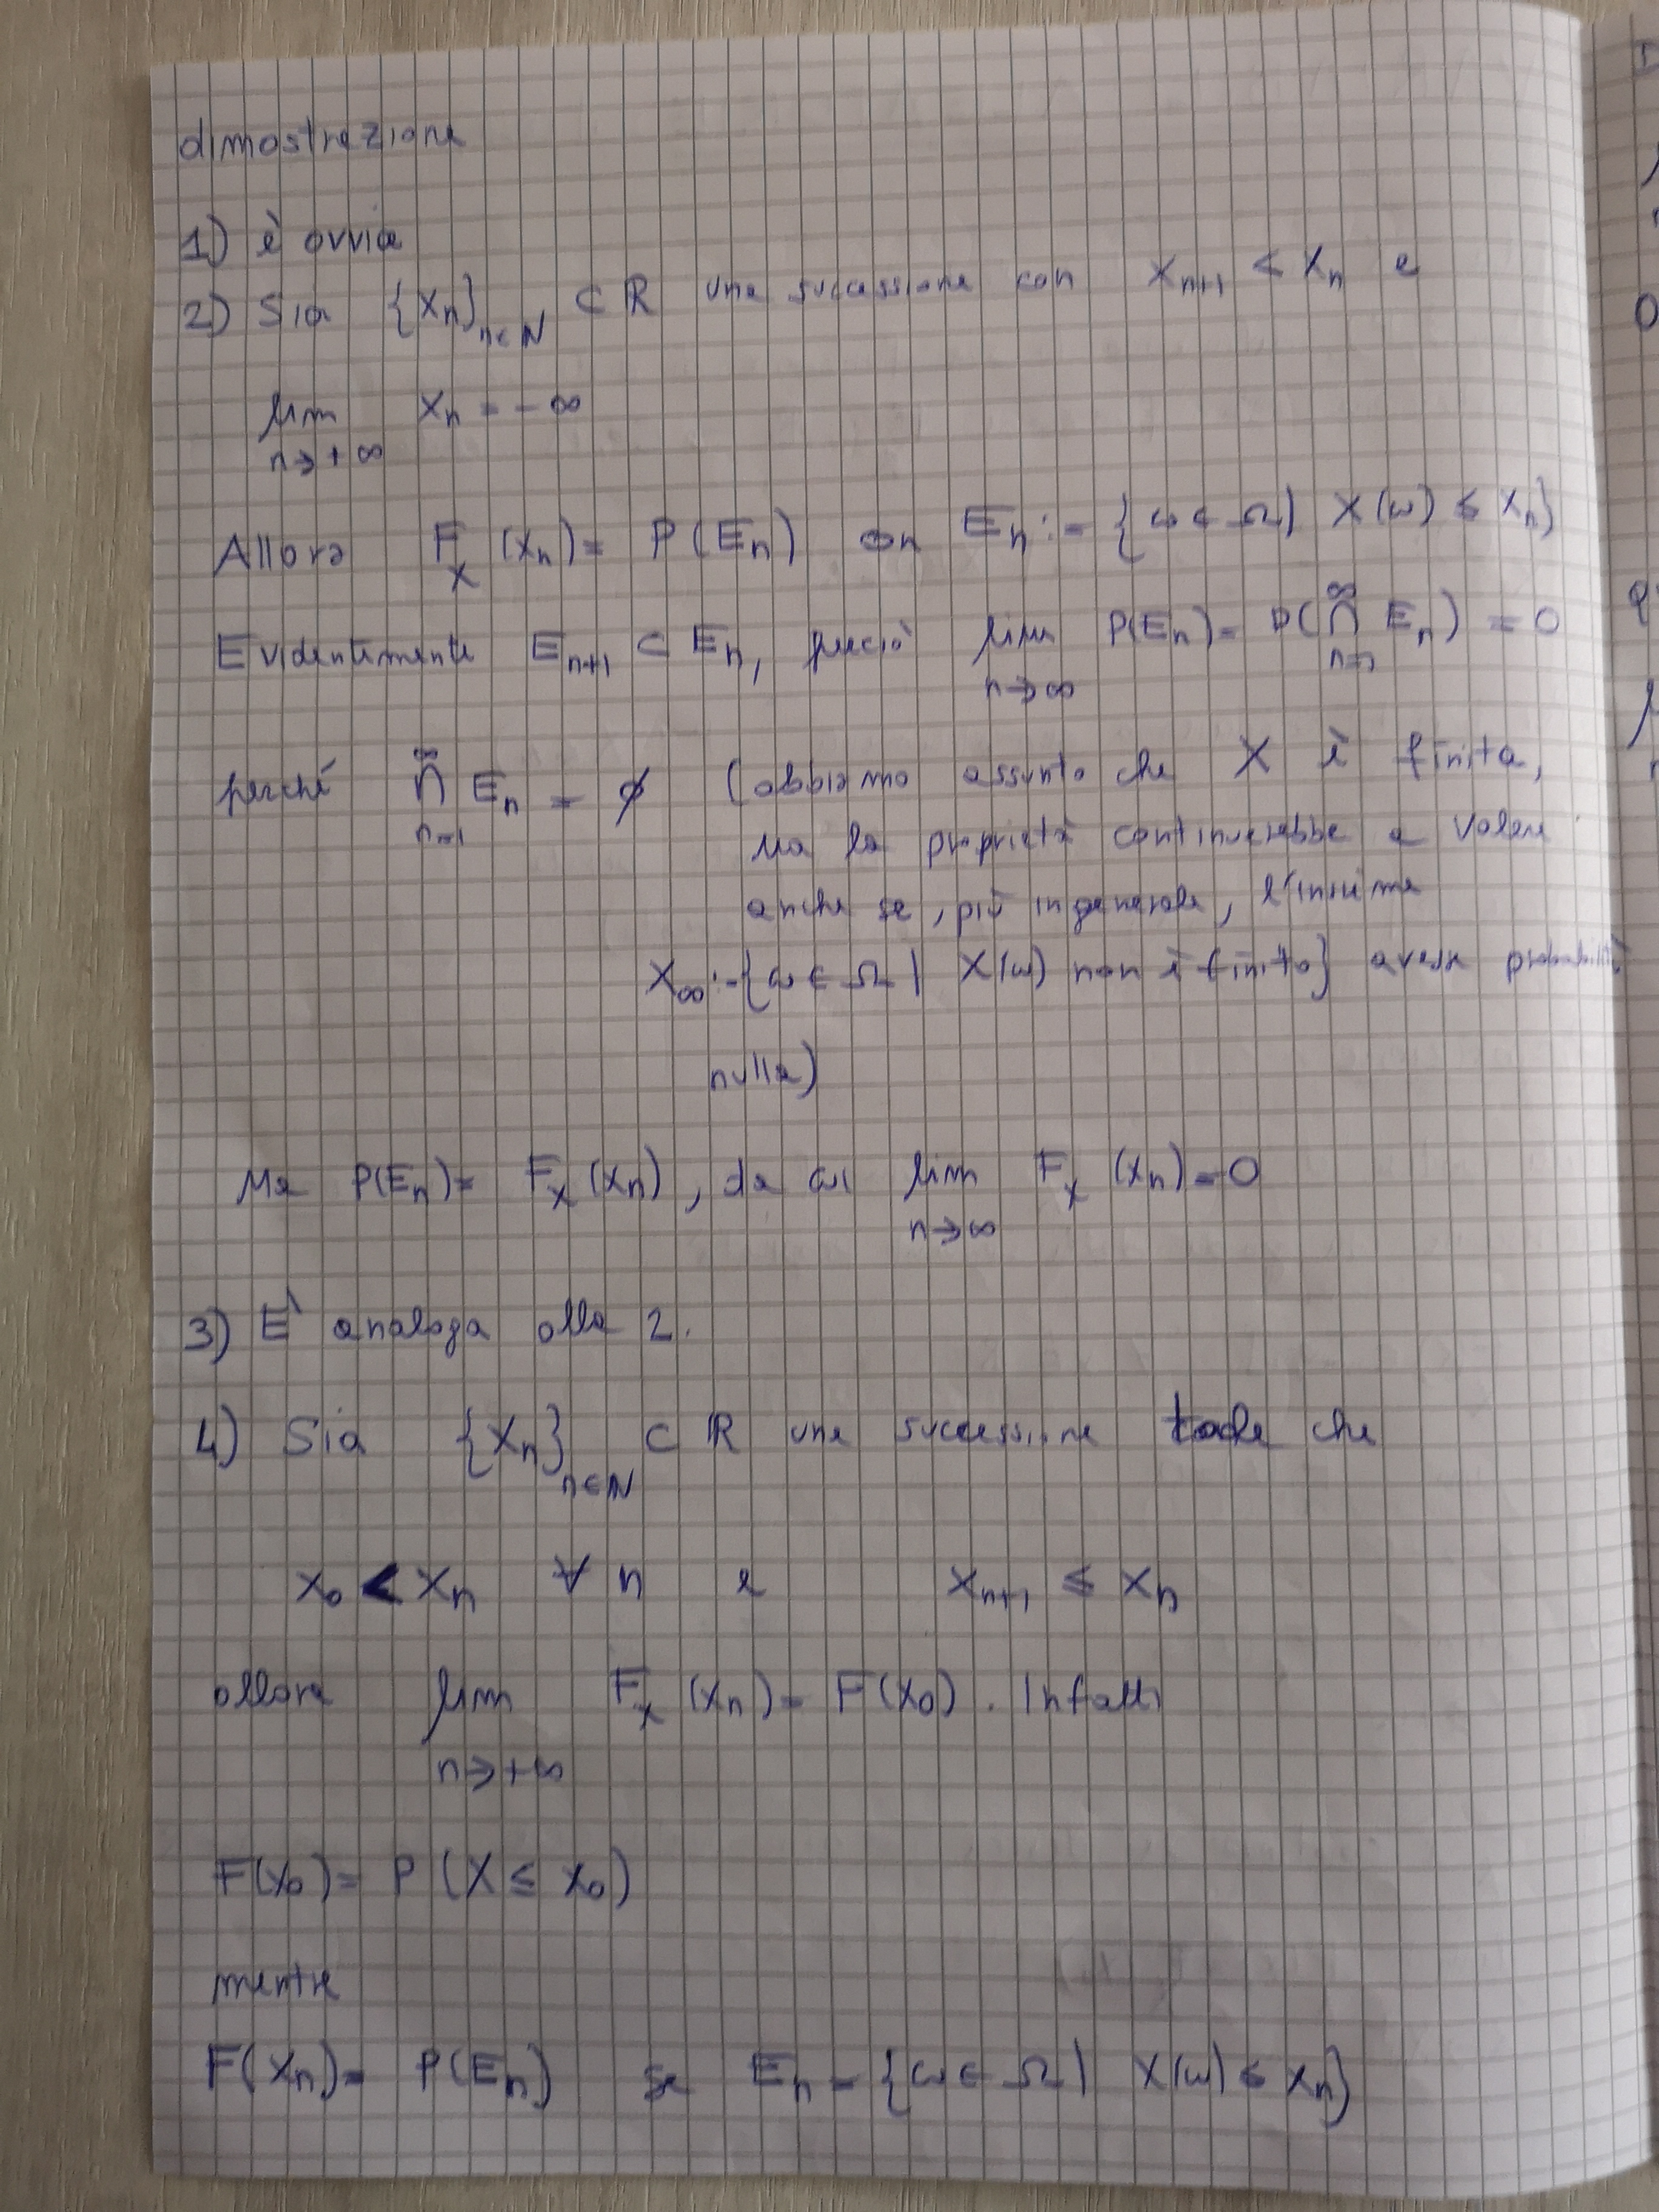 dimostrazione
1) è ovvia
2) Sia {Xn}n∈N ⊂ R una successione con Xn+1 < Xn e
lim Xn = -∞
n→+∞
Allora F_X (Xn) = P(En) con En := {ω ∈ Ω | X(ω) ≤ Xn}
Evidentemente En+1 ⊂ En, perciò lim n→∞ P(En) = P(∩ n=1 ∞ En) = 0
perché ∩ n=1 ∞ En = ∅ (abbiamo assunto che X è finita,
ma la proprietà continuerebbe a valere
anche se, più in generale, l'insieme
X∞ := {ω ∈ Ω | X(ω) non è finito} avesse probabilità
nulla)
Ma P(En) = F_X (Xn), da cui lim n→∞ F_X (Xn) = 0
3) E' analoga alla 2.
4) Sia {Xn}n∈N ⊂ R una successione tale che
X0 < Xn ∀ n e Xn+1 ≤ Xn
allora lim n→+∞ F_X (Xn) = F(X0). Infatti
F(X0) = P (X ≤ X0)
mentre
F(Xn) = P(En) se En = {ω ∈ Ω | X(ω) ≤ Xn}